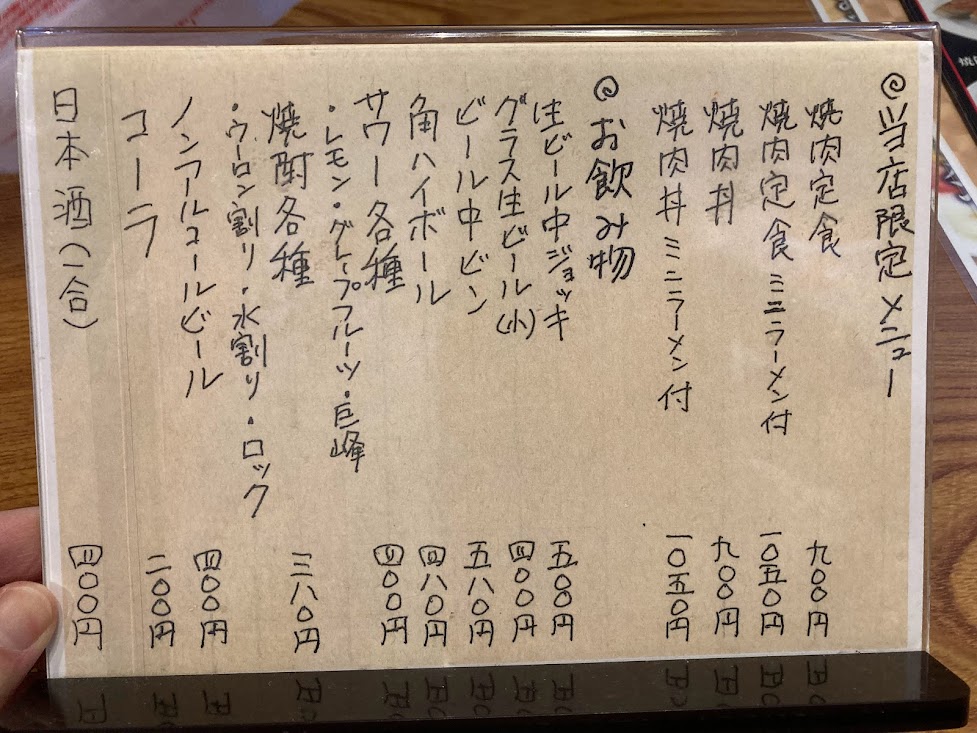 当店限定メニュー
焼肉定食 九〇〇円
焼肉定食 ミニラーメン付 一〇五〇円
焼肉丼 九〇〇円
焼肉丼 ミニラーメン付 一〇五〇円
お飲み物
生ビール中ジョッキ 五〇〇円
グラス生ビール(小) 四〇〇円
ビール中ビン 五八〇円
角ハイボール 四八〇円
サワー各種 四〇〇円
・レモン・グレープフルーツ・巨峰
焼酎各種 三八〇円
・ウーロン割り・水割り・ロック
ノンアルコールビール 四〇〇円
コーラ 二〇〇円
日本酒(一合) 四〇〇円